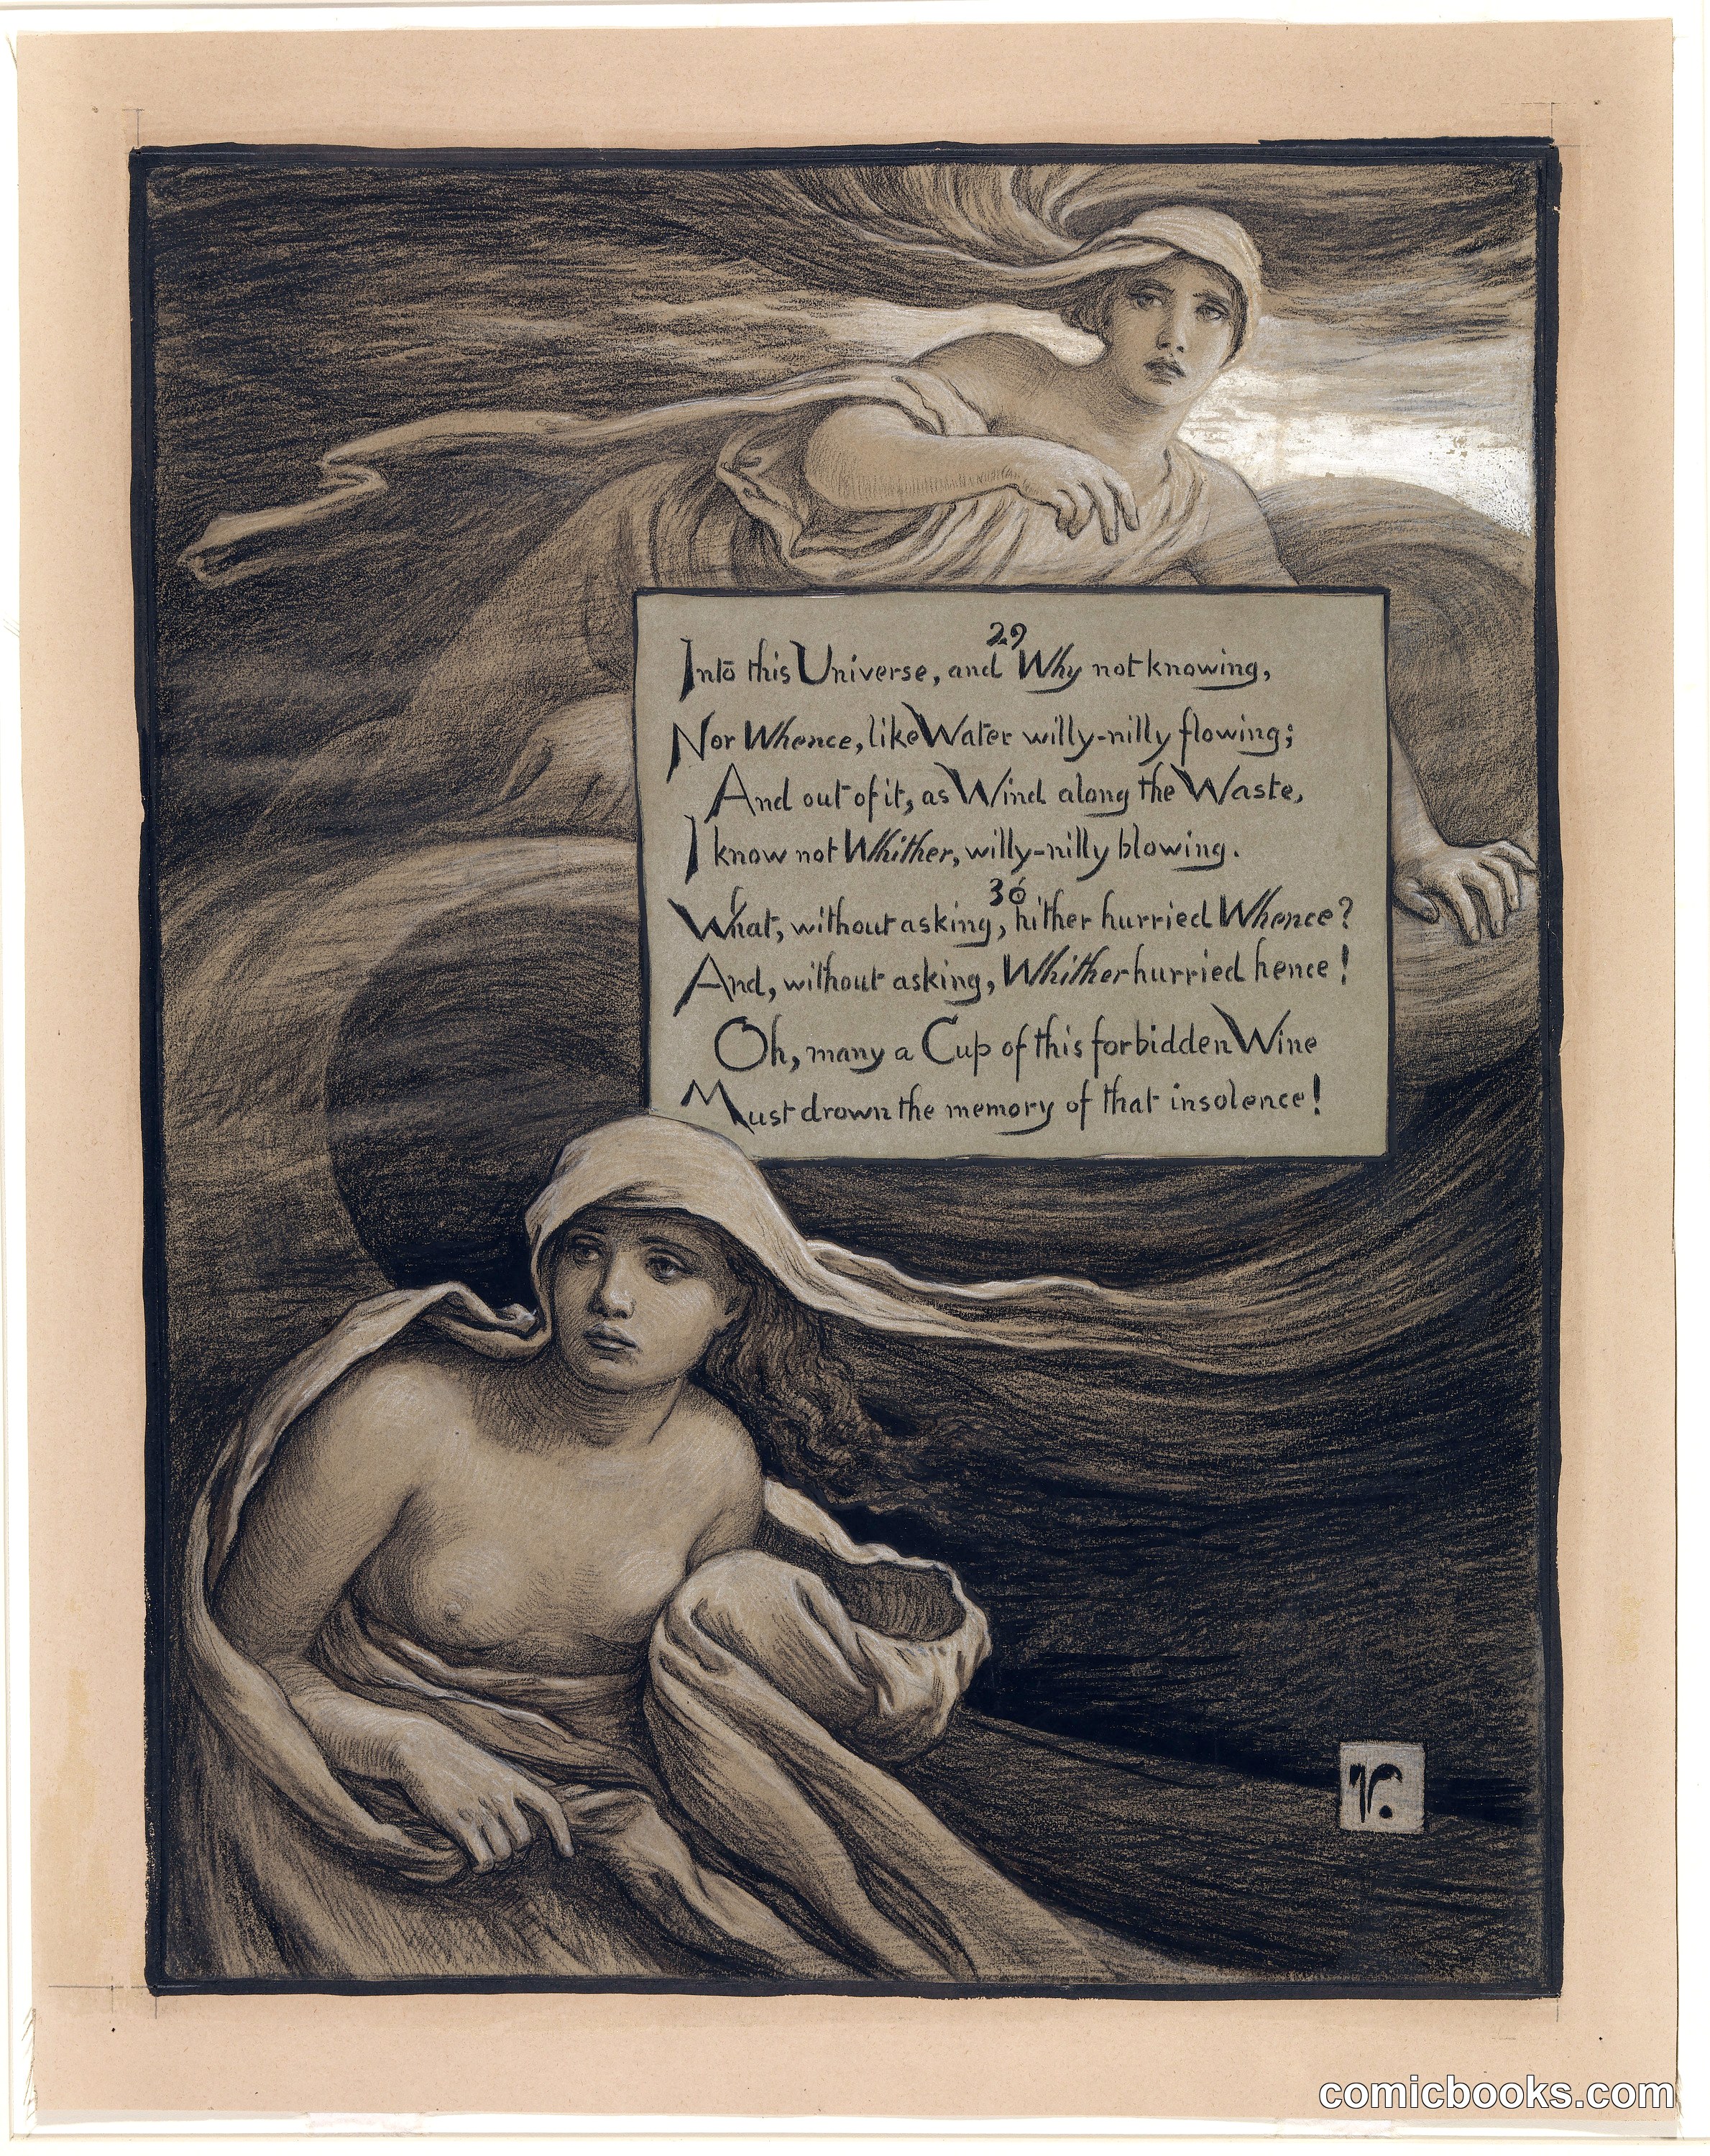 29
Into this Universe, and Why not knowing,
Nor Whence, like Water willy-nilly flowing;
And out of it, as Wind along the Waste,
I know not Whither, willy-nilly blowing.
30
What, without asking, hither hurried Whence?
And, without asking, Whither hurried hence!
Oh, many a Cup of this forbidden Wine
Must drown the memory of that insolence!
V.
comicbooks.com